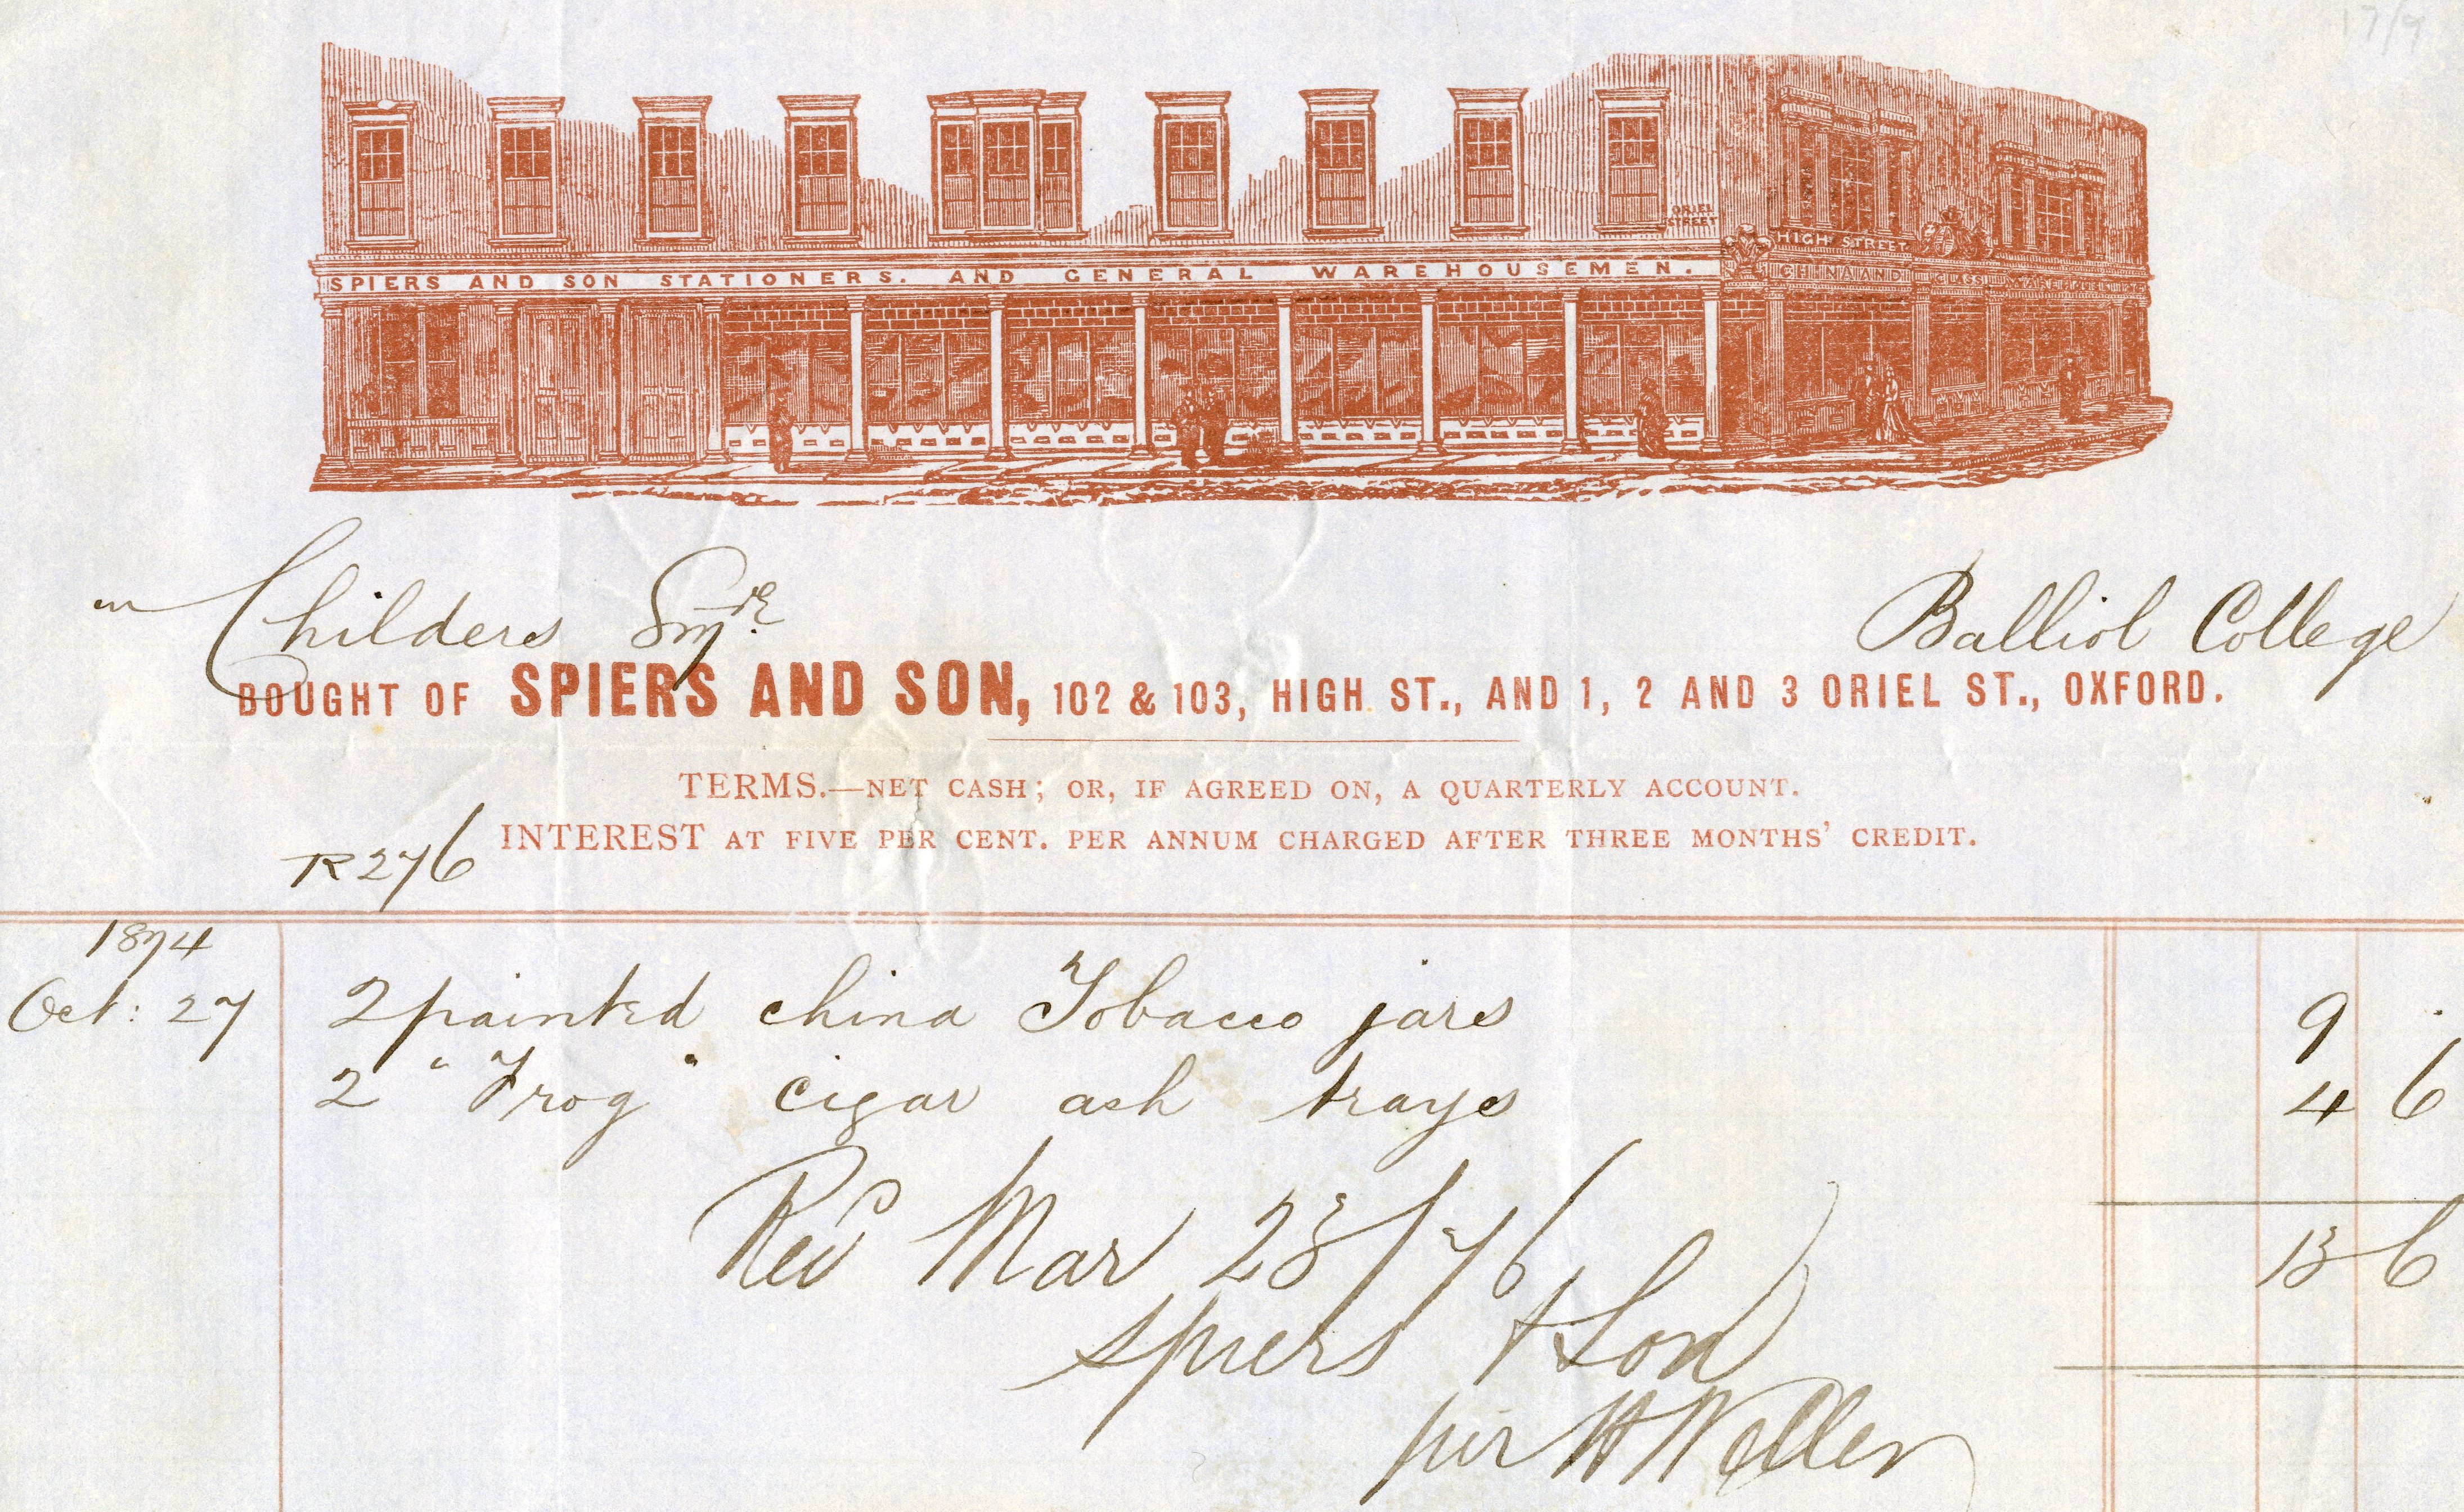 17/9
ORIEL
STREET
HIGH STREET
SPIERS AND SON STATIONERS. AND GENERAL WAREHOUSEMEN.
CHINA AND GLASS WAREHOUSE
Childers Esqre
Balliol College
BOUGHT OF SPIERS AND SON, 102 & 103, HIGH ST., AND 1, 2 AND 3 ORIEL ST., OXFORD.
TERMS.—NET CASH; OR, IF AGREED ON, A QUARTERLY ACCOUNT.
INTEREST AT FIVE PER CENT. PER ANNUM CHARGED AFTER THREE MONTHS' CREDIT.
R276
1874
Oct: 27 2 painted china Tobacco jars 9 .
2 "Frog" cigar ash trays 4 6
13 6
Recd Mar 23/76
Spiers & Son
per H Weller